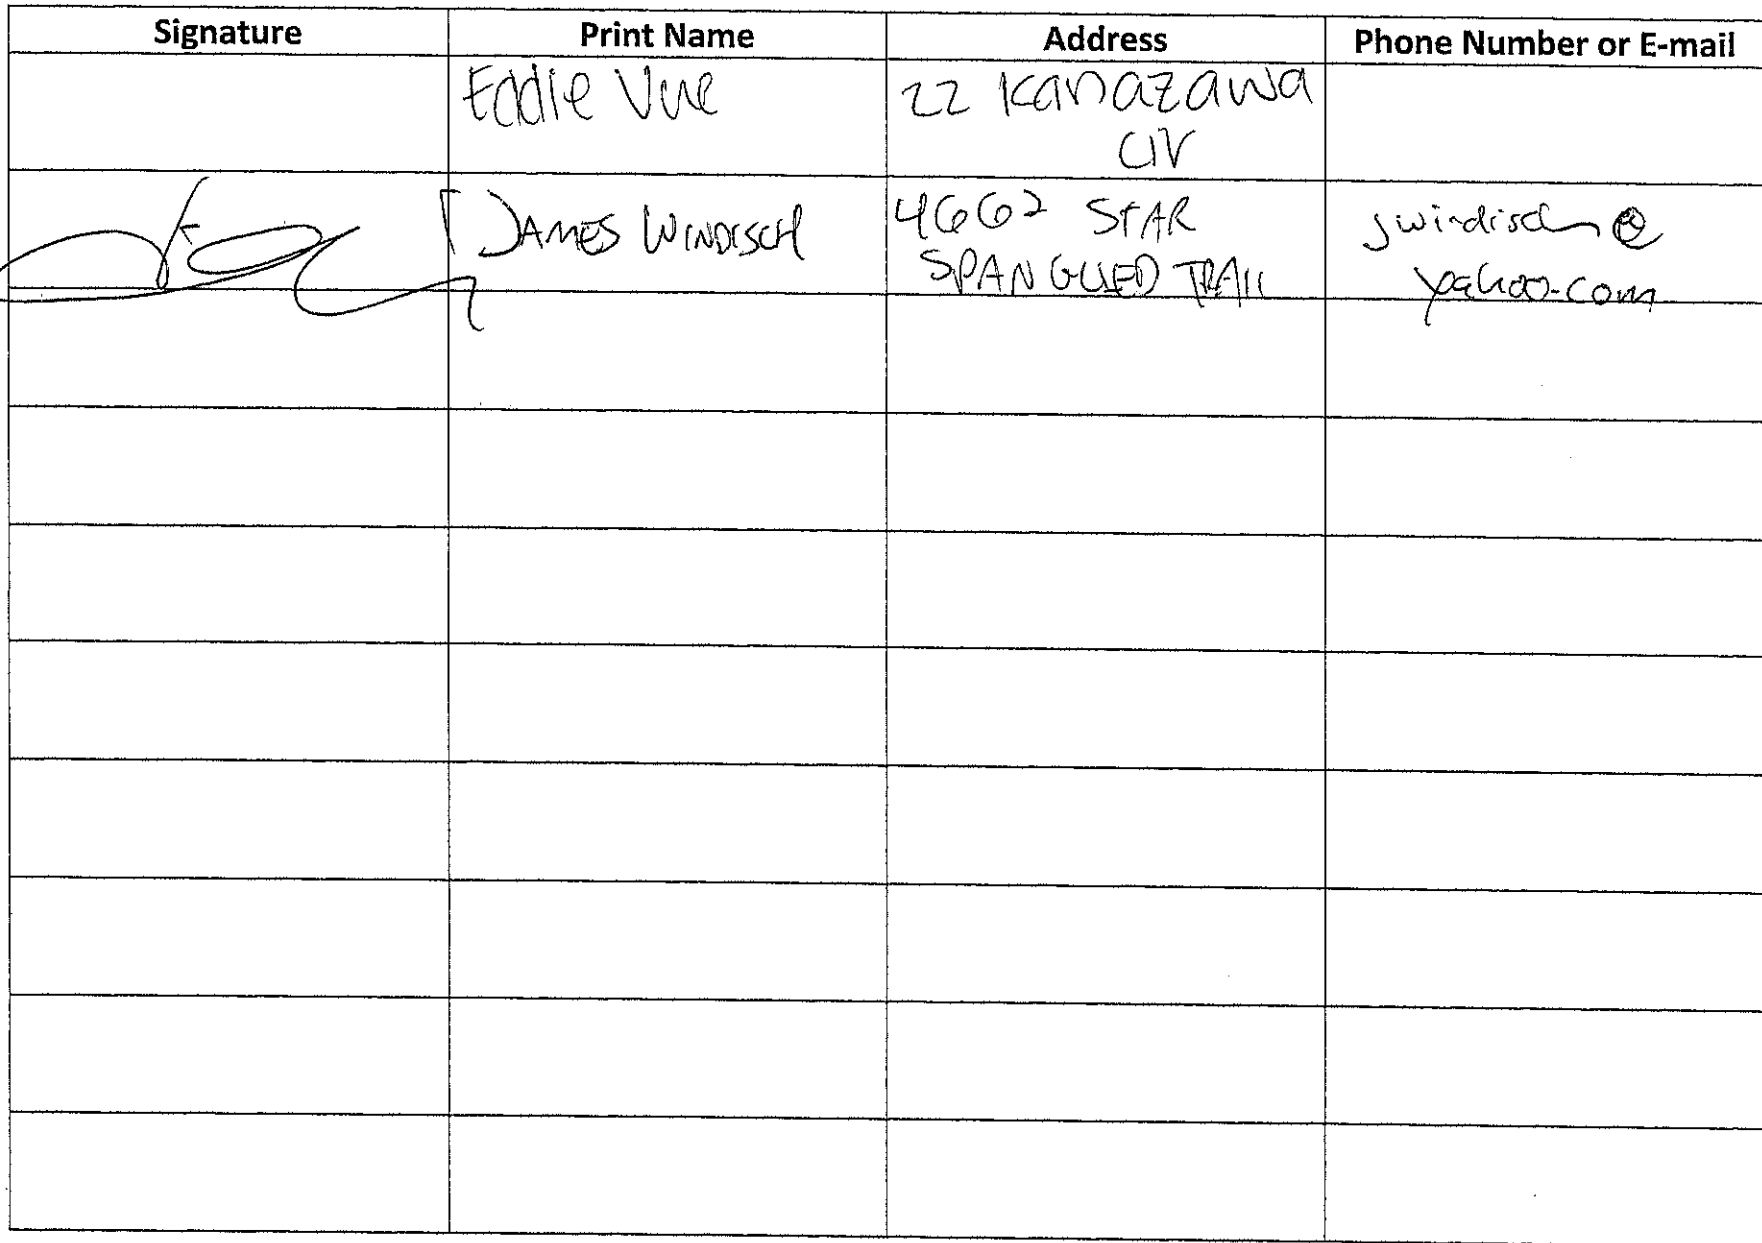 Signature Print Name Address Phone Number or E-mail
Eddie Vue 22 Kanazawa
CIV
JAMES WINDISCH 4662 STAR jwindisch@
SPANGLED TRAIL yahoo.com